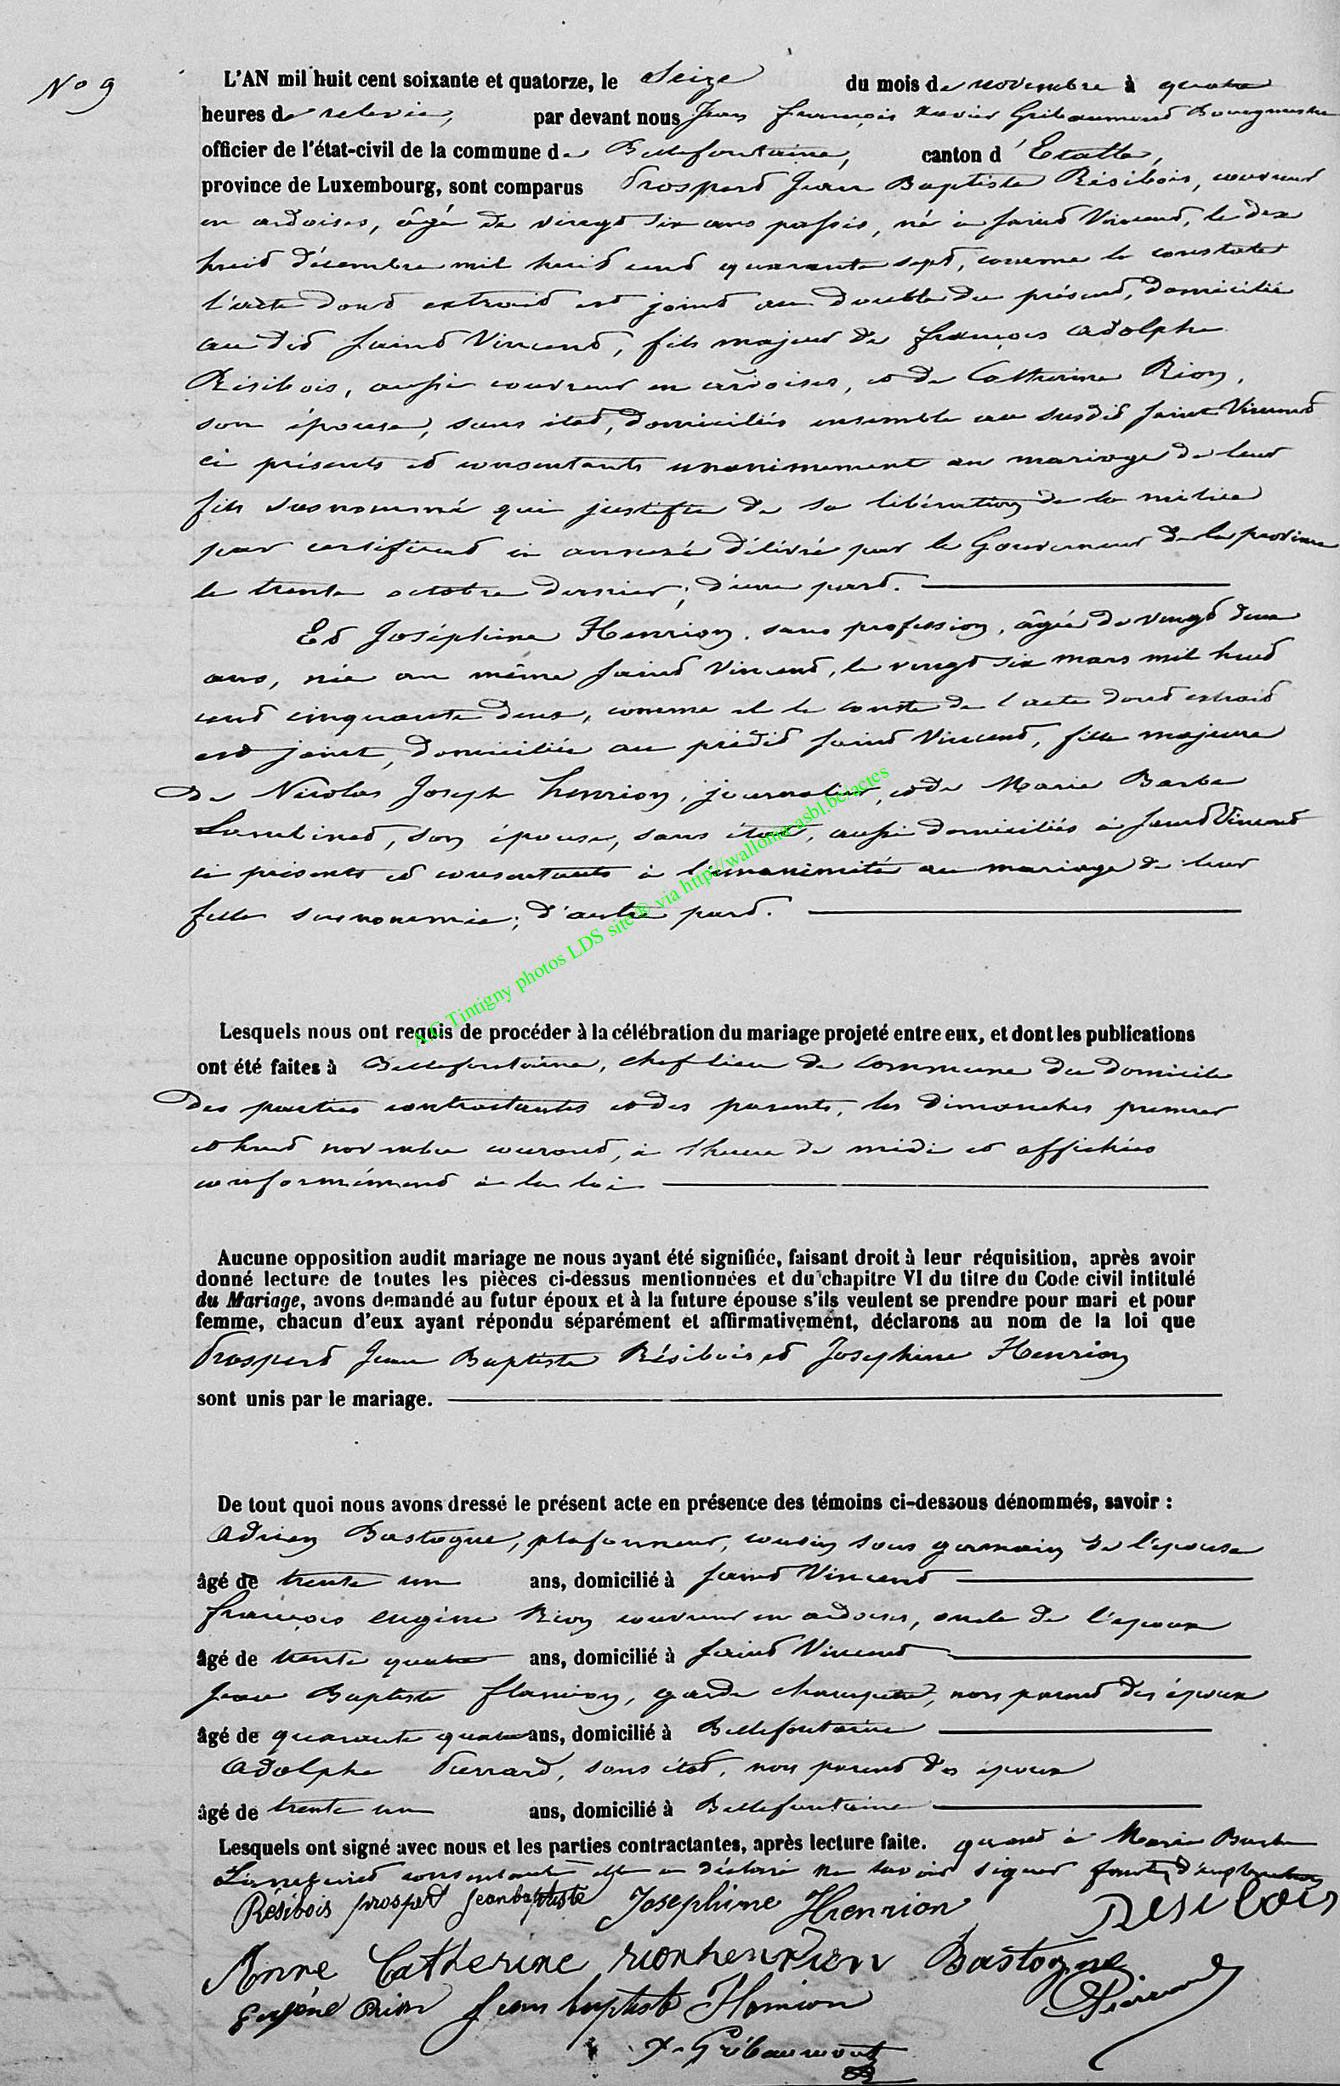 No 9
L'AN mil huit cent soixante et quatorze, le Seize du mois de novembre à quatre
heures de relevée, par devant nous Jean François Xavier Gribaumont Bourgmestre
officier de l'état-civil de la commune de Bellefontaine, canton d'Etalle,
province de Luxembourg, sont comparus Prosperd Jean Baptiste Résibois, couvreur
en ardoises, âgé de vingt six ans passés, né à Saint Vincent, le dix
huit décembre mil huit cent quarante sept, comme le constate
l'acte dont extrait est joint au double du présent, domicilié
au dit Saint Vincent, fils majeur de François Adolphe
Résibois, aussi couvreur en ardoises, et de Catherine Rion,
son épouse, sans état, domiciliés ensemble au susdit Saint Vincent
ci présents et consentants unanimement au mariage de leur
fils susnommé qui justifie de sa libération de la milice
par certificat ci annexé délivré par le Gouverneur de la province
le trente octobre dernier; d'une part.
Et Joséphine Henrion, sans profession, âgée de vingt deux
ans, née au même Saint Vincent, le vingt six mars mil huit
cent cinquante deux, comme il le conste de l'acte dont extrait
est joint, domiciliée au prédit Saint Vincent, fille majeure
de Nicolas Joseph Henrion, journalier, et de Marie Barbe
Lambinet, son épouse, sans état, aussi domiciliés à Saint Vincent
ci présents et consentants à l'unanimité au mariage de leur
fille susnommée; d'autre part.
A.C Tintigny photos LDS site® via http://wallonia.asbl.be/actes
Lesquels nous ont requis de procéder à la célébration du mariage projeté entre eux, et dont les publications
ont été faites à Bellefontaine, chef lieu de commune du domicile
des parties contractantes et des parents, les dimanches premier
et huit novembre courant, à l'heure de midi et affichées
conformément à la loi
Aucune opposition audit mariage ne nous ayant été signifiée, faisant droit à leur réquisition, après avoir
donné lecture de toutes les pièces ci-dessus mentionnées et du chapitre VI du titre du Code civil intitulé
du Mariage, avons demandé au futur époux et à la future épouse s'ils veulent se prendre pour mari et pour
femme, chacun d'eux ayant répondu séparément et affirmativement, déclarons au nom de la loi que
Prosperd Jean Baptiste Résibois et Joséphine Henrion
sont unis par le mariage.
De tout quoi nous avons dressé le présent acte en présence des témoins ci-dessous dénommés, savoir :
Adrien Bastogne, plafonneur, cousin sous germain de l'épouse
âgé de trente un ans, domicilié à Saint Vincent
François Eugène Rion couvreur en ardoises, oncle de l'époux
âgé de trente quatre ans, domicilié à Saint Vincent
Jean Baptiste Flamion, garde champêtre, non parent des époux
âgé de quarante quatre ans, domicilié à Bellefontaine
Adolphe Pierrard, sans état, non parent des époux
âgé de trente un ans, domicilié à Bellefontaine
Lesquels ont signé avec nous et les parties contractantes, après lecture faite. quant à Marie Barbe
Lambinet consentante elle a déclaré ne savoir signer
Résibois prosperd jeanbaptiste Joséphine Henrion Résibois
Anne Catherine rion henrion Bastogne
Eugène Rion Jean baptiste Flamion Pierrard
X. Gribaumont